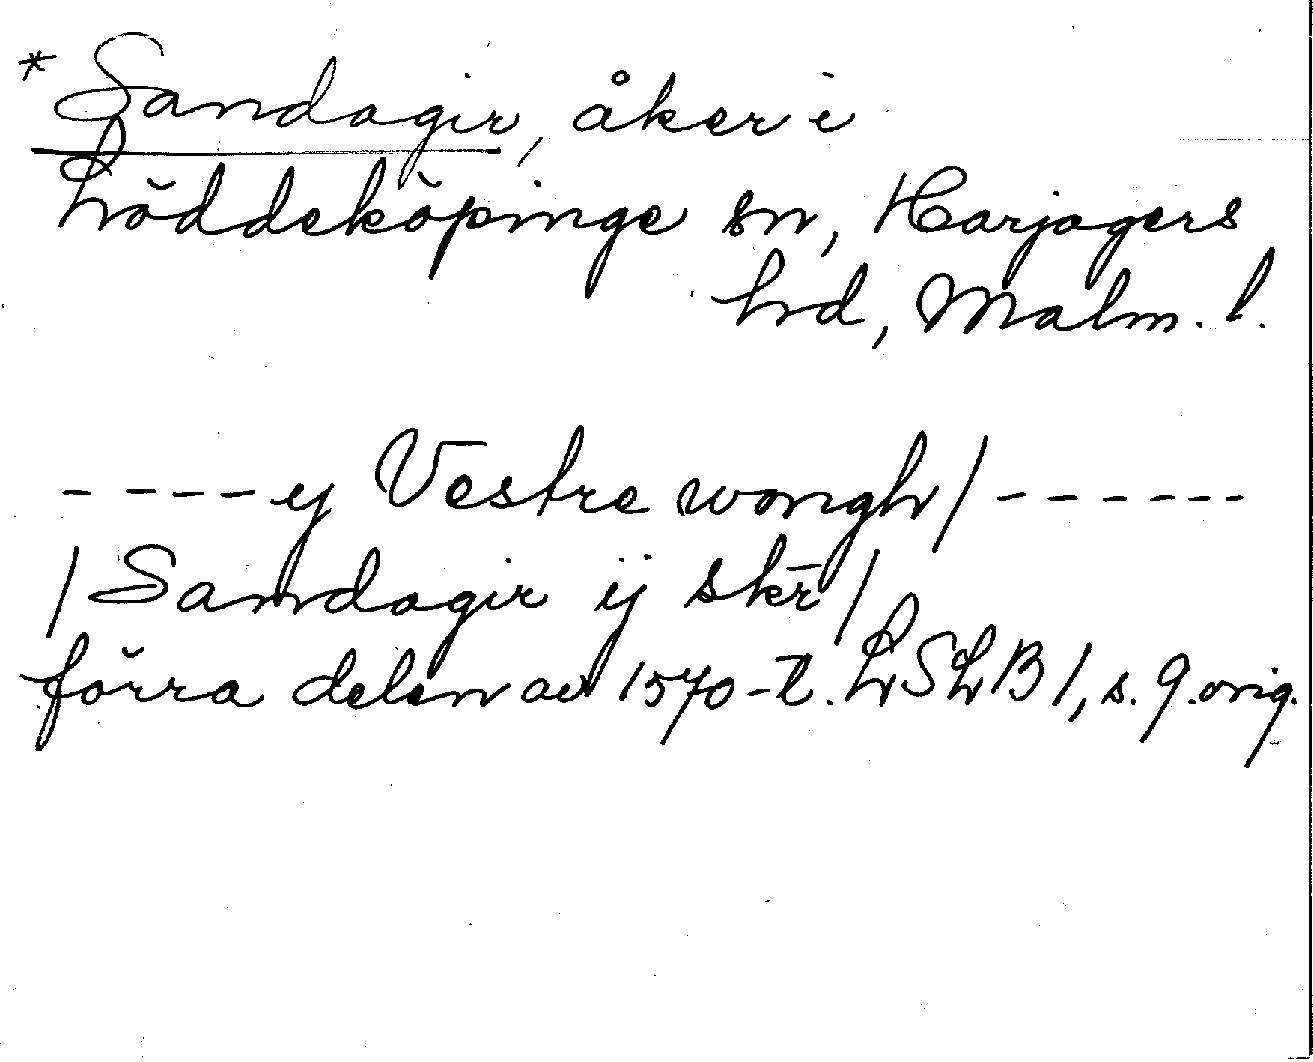 * Sandagir, åker i
Löddeköpinge sn, Harjagers
hrd, Malm. l.
- - - - - y Vestre wongh / - - - - - -
/ Sandagir ij skr̄ /
förra delen av 1570-t. LSLB 1, s. 9. orig.